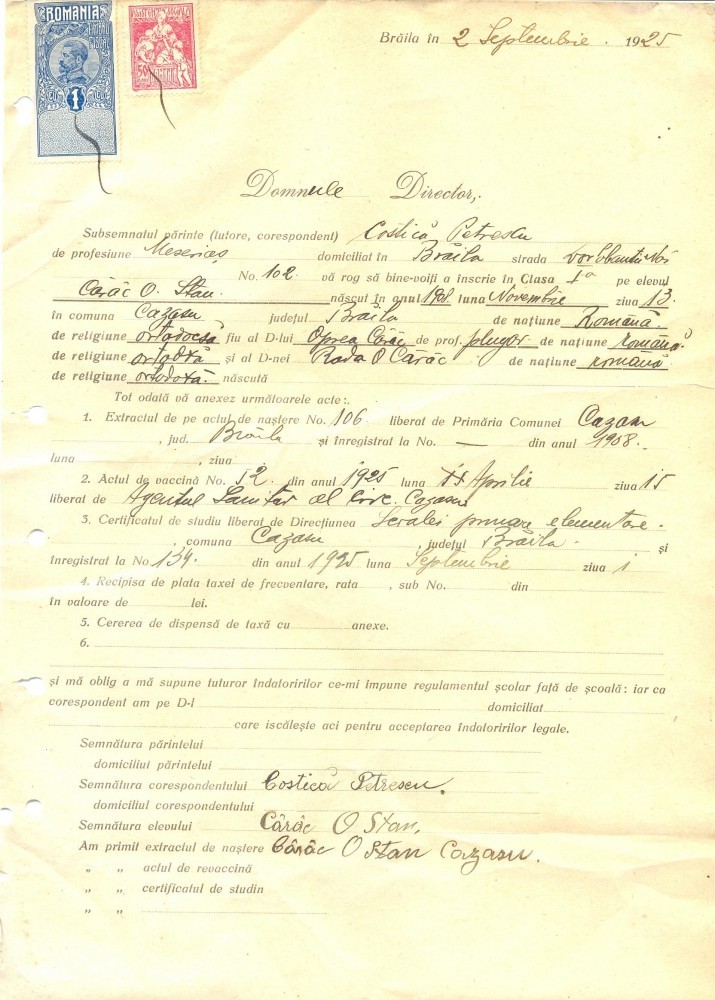 ROMANIA
1
50
Brăila în 2 Septembrie. 1925
Domnule Director,
Subsemnatul părinte (tutore, corespondent) Costică Petrescu
de profesiune Meseriaș domiciliat în Brăila strada
No. 102 vă rog să bine-voiți a înscrie în Clasa Iª pe elevul
Cărăc O. Stan născut în anul luna Novembrie ziua 13.
în comuna Cazasu județul Brăila de națiune Română.
de religiune ortodocsă fiu al D-lui Oprea Cărăc de prof. plugar de națiune română.
de religiune ortodoxă și al D-nei Rada O Cărăc de națiune română
de religiune ortodoxă. născută
Tot odată vă anexez următoarele acte:
1. Extractul de pe actul de naștere No. 106 liberat de Primăria Comunei Cazasu
, jud. Brăila și înregistrat la No. — din anul 1908.
luna , ziua
2. Actul de vaccină No. 52 din anul 1925 luna Aprilie ziua 15
liberat de Agentul Sanitar al Circ. Cazasu
3. Certificatul de studiu liberat de Direcțiunea Scoalei primare elementare.
, comuna Cazasu , județul Brăila. și
înregistrat la No 134. din anul 1925 luna Septembrie ziua 1
4. Recipisa de plata taxei de frecventare, rata , sub No. din
în valoare de lei.
5. Cererea de dispensă de taxă cu anexe.
6.
și mă oblig a mă supune tuturor îndatoririlor ce-mi impune regulamentul școlar față de școală: iar ca
corespondent am pe D-l domiciliat
care iscălește aci pentru acceptarea îndatoririlor legale.
Semnătura părintelui
domiciliul părintelui
Semnătura corespondentului Costică Petrescu.
domiciliul corespondentului
Semnătura elevului Cărăc O Stan.
Am primit extractul de naștere Cărăc O Stan Cazasu.
„ „ actul de revaccină
„ „ certificatul de studin
„ „